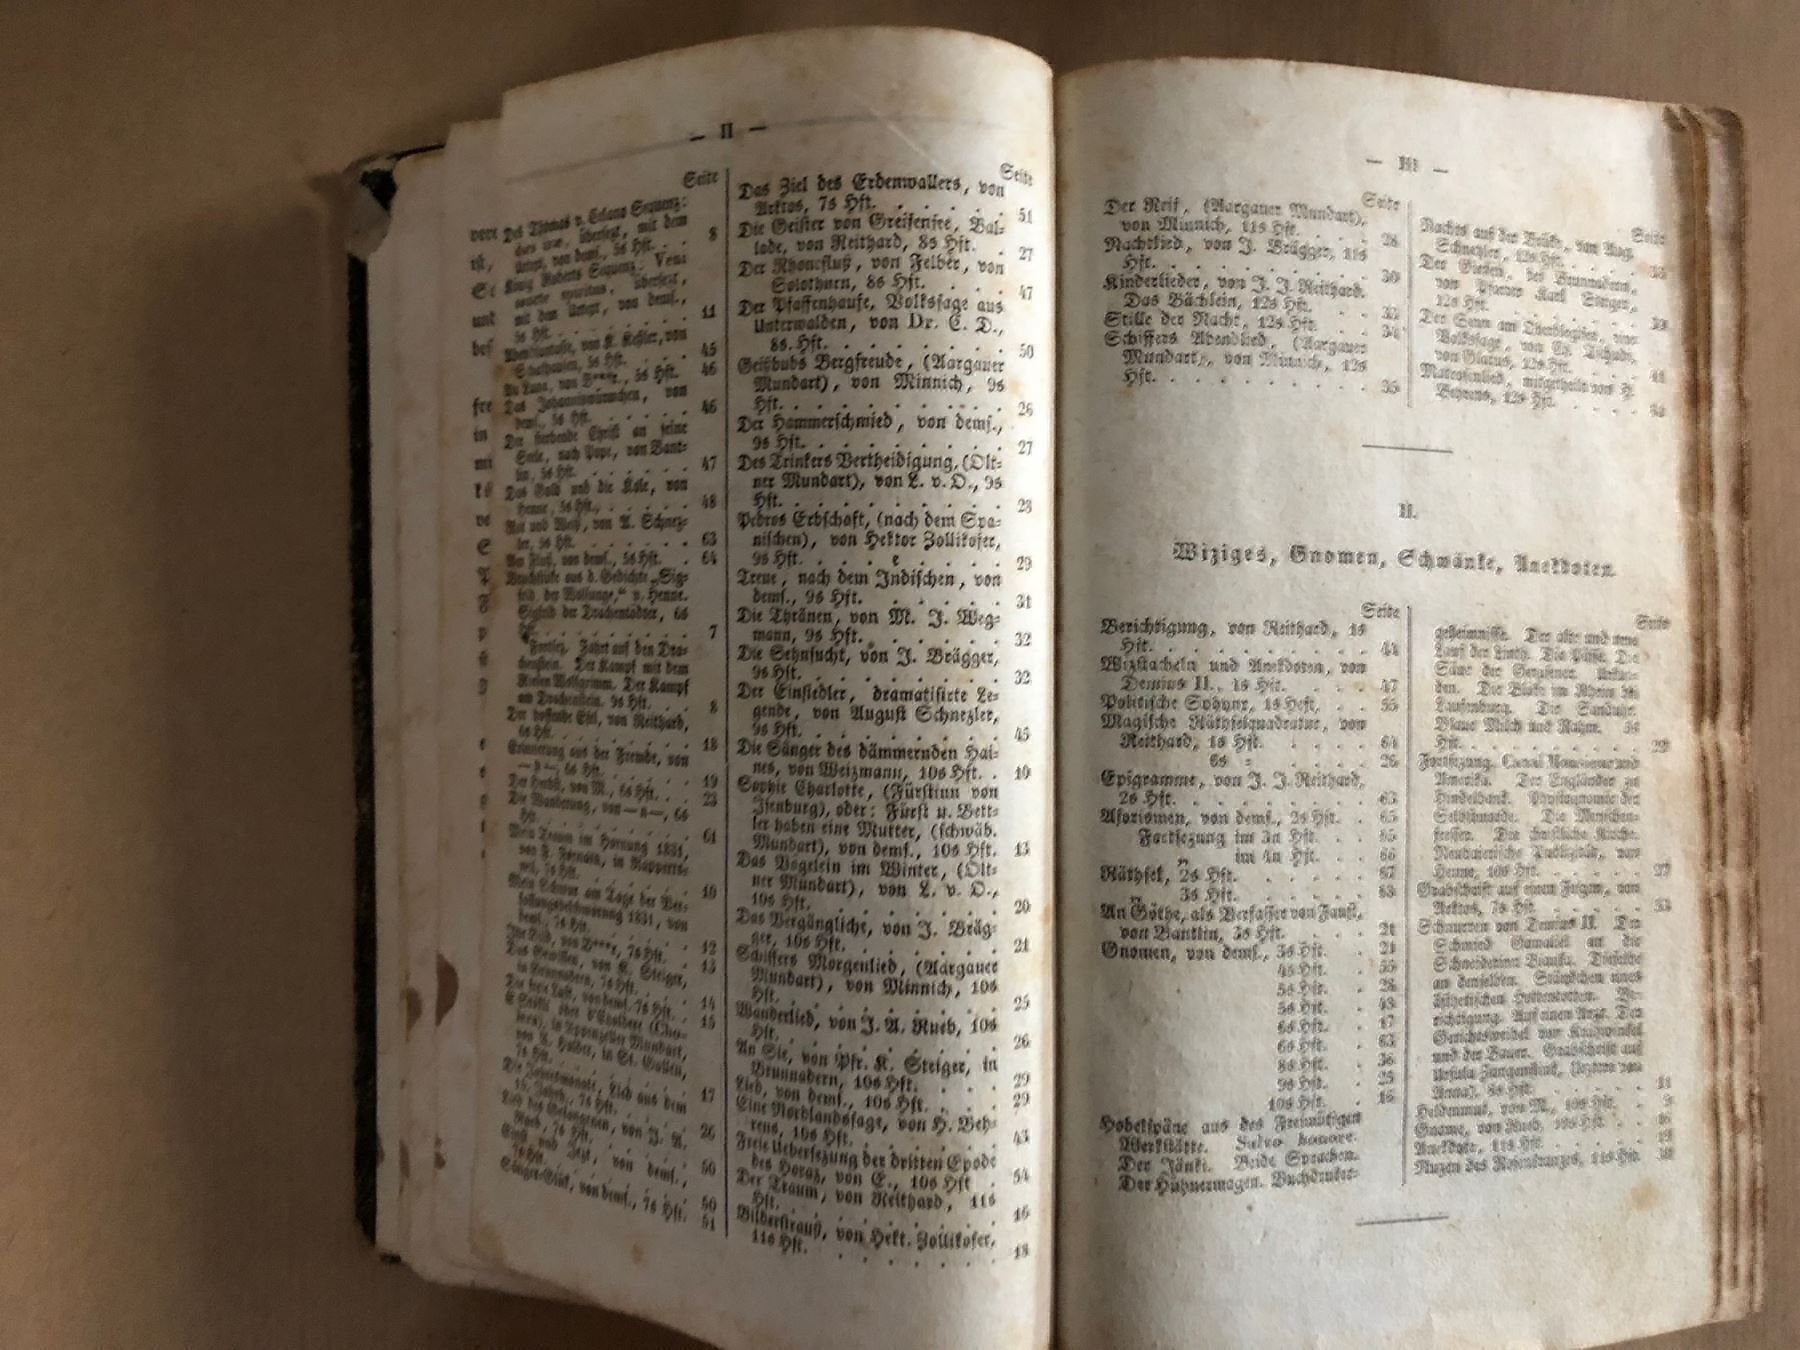 — II —
Seite
Des Thomas v. Celano Sequenz:
dies irae, übersezt, mit dem
Urtext, von dems., 5s Hft. . . 8
König Roberts Sequenz: Veni
sancte spiritus, übersezt,
mit dem Urtext, von dems.,
5s Hft. . . . . . . 11
Abendfantasie, von K. Keßler, von
5s Hft. . . . 45
An Luna, von D***r., 5s Hft. . 46
Das Johanniswürmchen, von
dems., 5s Hft. . . . . . 46
Der sterbende Christ an seine
Seele, nach Pope, von Bant-
lin, 5s Hft. . . . . . . 47
Das Gold und die Kole, von
Henne, 5s Hft., . . . . . 48
Rot und Weiß, von A. Schnez-
ler, 5s Hft. . . . . . . 63
Am Fluß, von dems., 5s Hft. . 64
Bruchstüke aus d. Gedichte „Sig-
frid der Wolsunge,“ v. Henne.
Sigfrid der Drachentödter, 6s
Hft. . . . . . . . . 7
Fortsez. Fahrt auf den Dra-
chenstein. Der Kampf mit dem
Riesen Wolfgrimm. Der Kampf
am Drachenstein. 9s Hft. . . 8
Der hoffende Esel, von Reithard,
6s Hft. . . . . . . . 18
Erinnerung aus der Fremde, von
— y —, 6s Hft. . . . . . 19
Der Herbst, von M., 6s Hft. . . 23
Die Wanderung, von — n —, 6s
Hft. . . . . . . . . 61
Mein Traum im Hornung 1831,
von F. in Rappers-
wil, 7s Hft. . . . . . 10
Mein Schwur am Tage der Ver-
fassungsbeschwörung 1831, von
dems., 7s Hft. . . . . . 12
Ihr Bild, von D***r, 7s Hft. . . 13
Das Gewissen, von K. Steiger,
in Brunnadern, 7s Hft. . . 14
Die freie Luft, von dems. 7s Hft. . 15
in Appenzeller Mundart,
von in St. Gallen,
7s Hft. . . . . . . . 17
Die Jahrsmonate, Lich aus dem
15. Jahrh., 7s Hft. . . . . 26
Lied des Gefangenen, von J. A.
Rueb, 7s Hft. . . . . . 50
Einst und Jezt, von dems.,
7s Hft. . . . . . . . 50
Sänger-Glük, von dems., 7s Hft. 51
Seite
Das Ziel des Erdenwallers, von
Arktos, 7s Hft. . . . . . 51
Die Geister von Greifensee, Bal-
lade, von Reithard, 8s Hft. . 27
Der Rhonefluß, von Felber, von
Solothurn, 8s Hft. . . . . 47
Der Pfaffenhaufe, Volkssage aus
Unterwalden, von Dr. C. D.,
8s. Hft. . . . . . . . 50
Geißbubs Bergfreude, (Aargauer
Mundart), von Minnich, 9s
Hft. . . . . . . . . 26
Der Hammerschmied, von dems.,
9s Hft. . . . . . . . 27
Des Trinkers Vertheidigung, (Olt-
ner Mundart), von L. v. O., 9s
Hft. . . . . . . . . 28
Pedros Erbschaft, (nach dem Spa-
nischen), von Hektor Zollikofer,
9s Hft. . . . . . . . 29
Treue, nach dem Indischen, von
dems., 9s Hft. . . . . . 31
Die Thränen, von M. J. Weg-
mann, 9s Hft. . . . . . 32
Die Sehnsucht, von J. Brägger,
9s Hft. . . . . . . . 32
Der Einsiedler, dramatisirte Le-
gende, von August Schnezler,
9s Hft. . . . . . . . 45
Die Sänger des dämmernden Hai-
nes, von Weizmann, 10s Hft. . 10
Sophie Charlotte, (Fürstinn von
Isenburg), oder: Fürst u. Bett-
ler haben eine Mutter, (schwäb.
Mundart), von dems., 10s Hft. 13
Das Vögelein im Winter, (Olt-
ner Mundart), von L. v. O.,
10s Hft. . . . . . . . 20
Das Vergängliche, von J. Bräg-
ger, 10s Hft. . . . . . 21
Schiffers Morgenlied, (Aargauer
Mundart), von Minnich, 10s
Hft. . . . . . . . . 25
Wanderlied, von J. A. Rueb, 10s
Hft. . . . . . . . . 26
An Sie, von Pfr. K. Steiger, in
Brunnadern, 10s Hft. . . . 29
Lied, von dems., 10s Hft. . . . 29
Eine Nordlandssage, von H. Beh-
rens, 10s Hft. . . . . . 43
Freie Uebersezung der dritten Epode
des Horaz, von E., 10s Hft . 54
Der Traum, von Reithard, 11s
Hft. . . . . . . . . 16
Bilderstrauß, von Hekt. Zollikofer,
11s Hft. . . . . . . . 18
— III —
Seite
Der Reif, (Aargauer Mundart),
von Minnich, 11s Hft. . . . 28
Nachtlied, von J. Brägger, 11s
Hft. . . . . . . . . 30
Kinderlieder, von J. J. Reithard.
Das Bächlein, 12s Hft. . . . 33
Stille der Nacht, 12s Hft. . . 34
Schiffers Abendlied, (Aargauer
Mundart), von Minnich, 12s
Hft. . . . . . . . . 35
Seite
Nachts auf der Brüke, von Aug.
Schnezler, 12s Hft. . . .
Der Gießen, bei Brunnadern,
von Pfarrer Karl Steiger,
12s Hft. . . . . . . . 39
Der Senn am Oberblegisee, eine
Volkssage, von Ch. Tschudi,
von Glarus, 12s Hft. . . . 41
Matrosenlied, mitgetheilt von H.
Behrens, 12s Hft. . . . .
II.
Wiziges, Gnomen, Schwänke, Anekdoten.
Seite
Berichtigung, von Reithard, 1s
Hft. . . . . . . . . 44
Wizstacheln und Anekdoten, von
Demius II., 1s Hft. . . . 47
Politische Sphynx, 1s Heft, . . 55
Magische Räthselquadratur, von
Reithard, 1s Hft. . . . . 64
6s „ . . . . 26
Epigramme, von J. J. Reithard,
2s Hft. . . . . . . . 63
Aforismen, von dems., 2s Hft. . 65
Fortsezung im 3n Hft. . . 85
„ im 4n Hft. . . 86
Räthsel, 2s Hft. . . . . . 67
„ 3s Hft. . . . . . 83
An Göthe, als Verfasser von Faust,
von Bantlin, 3s Hft. . . . 21
Gnomen, von dems., 3s Hft. . 21
4s Hft. . 55
5s Hft. . 28
5s Hft. . 43
6s Hft. . 17
6s Hft. . 63
8s Hft. . 36
9s Hft. . 25
10s Hft. . 16
Hobelspäne aus des Freimütigen
Werkstätte. Salvo honore.
Der Jänki. Beide Sprachen.
Der Hühnermagen. Buchdruker-
Seite
geheimnisse. Der alte und neue
Lauf der Linth. Die Pässe. Die
Säue der Gergesener.
den. Die Brüke im Rhein bei
Laufenburg. Die Sanduhr.
Blaue Milch und Rahm. 5s
Hft. . . . . . . . . 22
Fortsezung.
Amerika. Der Engländer zu
Hindelbank. Physiognomie der
Selbstmorde. Die Menschen-
fresser. Die christliche Kirche.
Neubaierische Publizität, von
Henne, 10s Hft. . . . . . 27
Grabschrift auf einen Feigen, von
Arktos, 7s Hft. . . . . . 53
Schnurren von Demius II. Der
Schmied Gamaliel an die
Schneiderinn Bianka. Dieselbe
an denselben. Ständchen eines
ästhetischen Hirtenknaben. Be-
richtigung. Auf einen Arzt. Der
Gerichtsweibel von Krähwinkel
und der Bauer. Grabschrift auf
Ursula
Anna), 8s Hft. . . . . . 11
Heldenmut, von M., 10s Hft. . 9
Gnome, von Rueb, 10s Hft. . . 16
Anekdote, 11s Hft. . . . . 12
Nuzen des Rosenkranzes, 11s Hft. 30